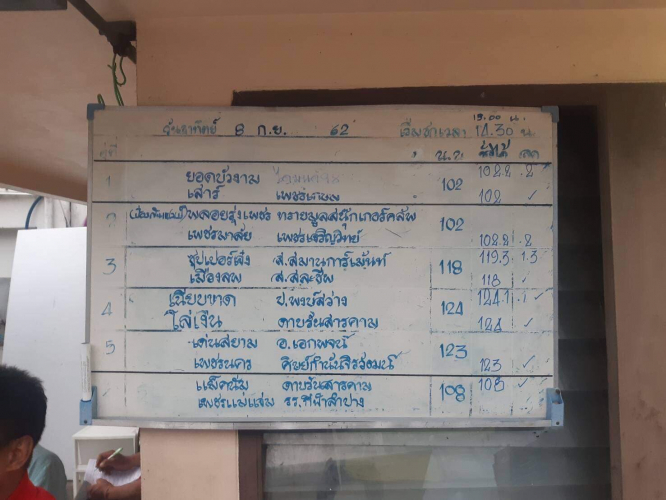 วันอาทิตย์ 8 ก.ย. 62 เริ่มชกเวลา 14.30 น.
15.00 น.
คู่ที่ น.น. ชั่งได้ ลด
1 ยอดบัวงาม 102 102.2 .2
เสาร์ 102 ✓
2 พลอยรุ่งเพชร ทรายมูลสนุ๊กเกอร์คลับ 102
เพชรมาลัย เพชรเจริญวิทย์ 102.2 .2
3 ซุปเปอร์ผึ้ง ส.สมานการ์เม้นท์ 118 119.3 1.3
เมืองลพ ส.สละชีพ 118 ✓
4 เฉียบขาด ป.พงษ์สว่าง 124 124.1 .1 ✓
ไล่เงิน ดาบรันสารคาม 124 ✓
5 เด่นสยาม อ.เอกพจน์ 123
เพชรนคร ศิษย์กำนันจิรวัฒน์ 123 ✓
แม็คนั่ม ดาบรันสารคาม 108 108 ✓
เพชรแม่แฝม รร.กีฬาลำปาง